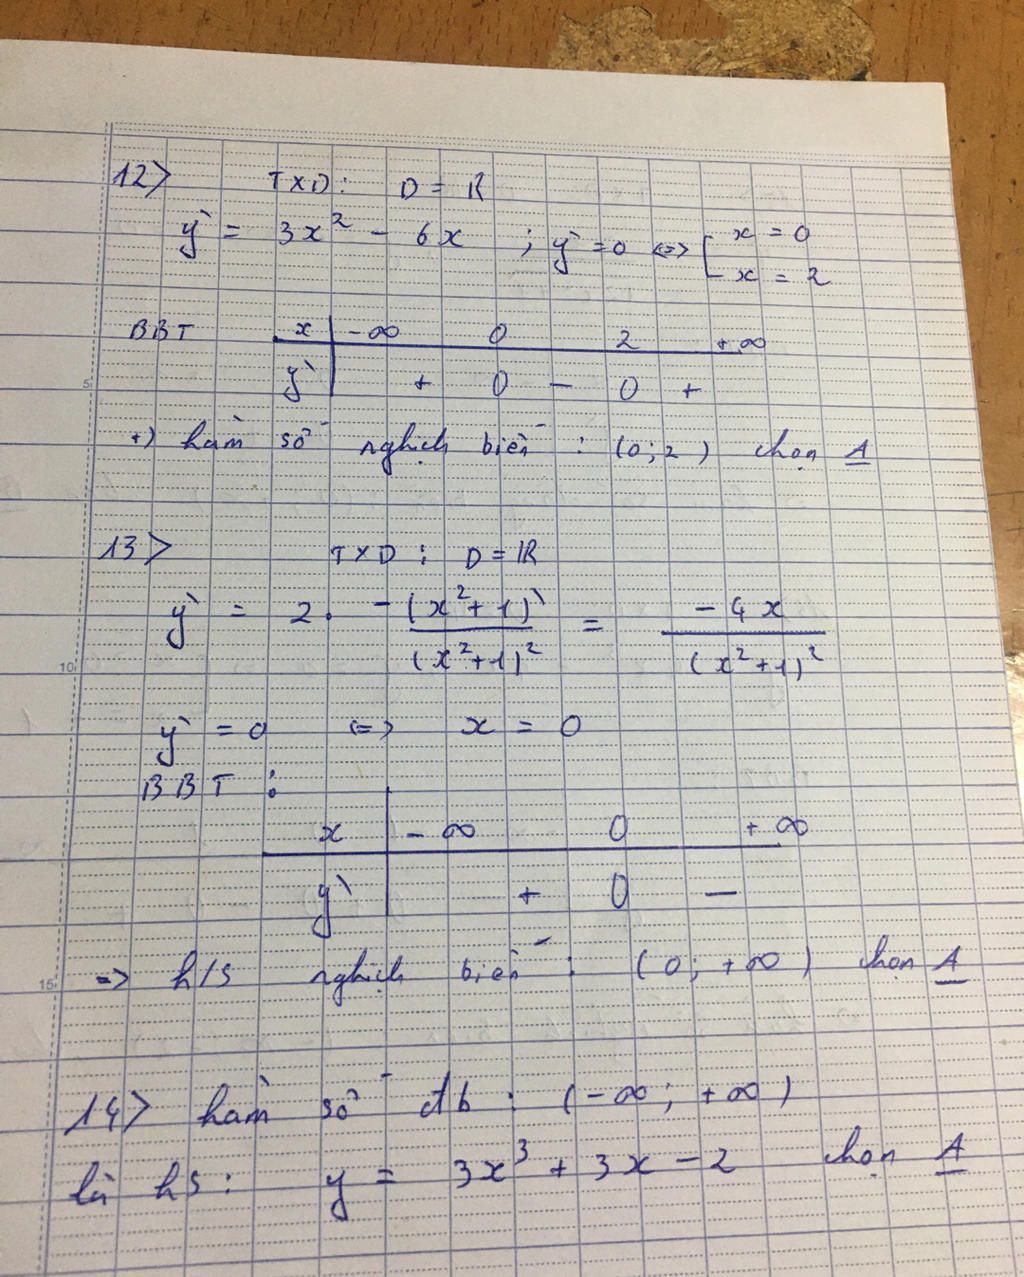 12> TXD: D = R
y' = 3x² - 6x ; y' = 0 <=> [ x = 0
x = 2
BBT x -∞ 0 2 +∞
5
y' + 0 - 0 +
+) hàm số nghịch biến : (0;2) chọn A
13> TXD : D = R
y' = 2. -(x²+1)' / (x²+1)² = -4x / (x²+1)²
10
y' = 0 <=> x = 0
BBT :
x -∞ 0 +∞
y' + 0 -
=> h/s nghịch biến : (0; +∞) chọn A
15
14> hàm số đb : (-∞; +∞)
là hs : y = 3x³ + 3x - 2 chọn A